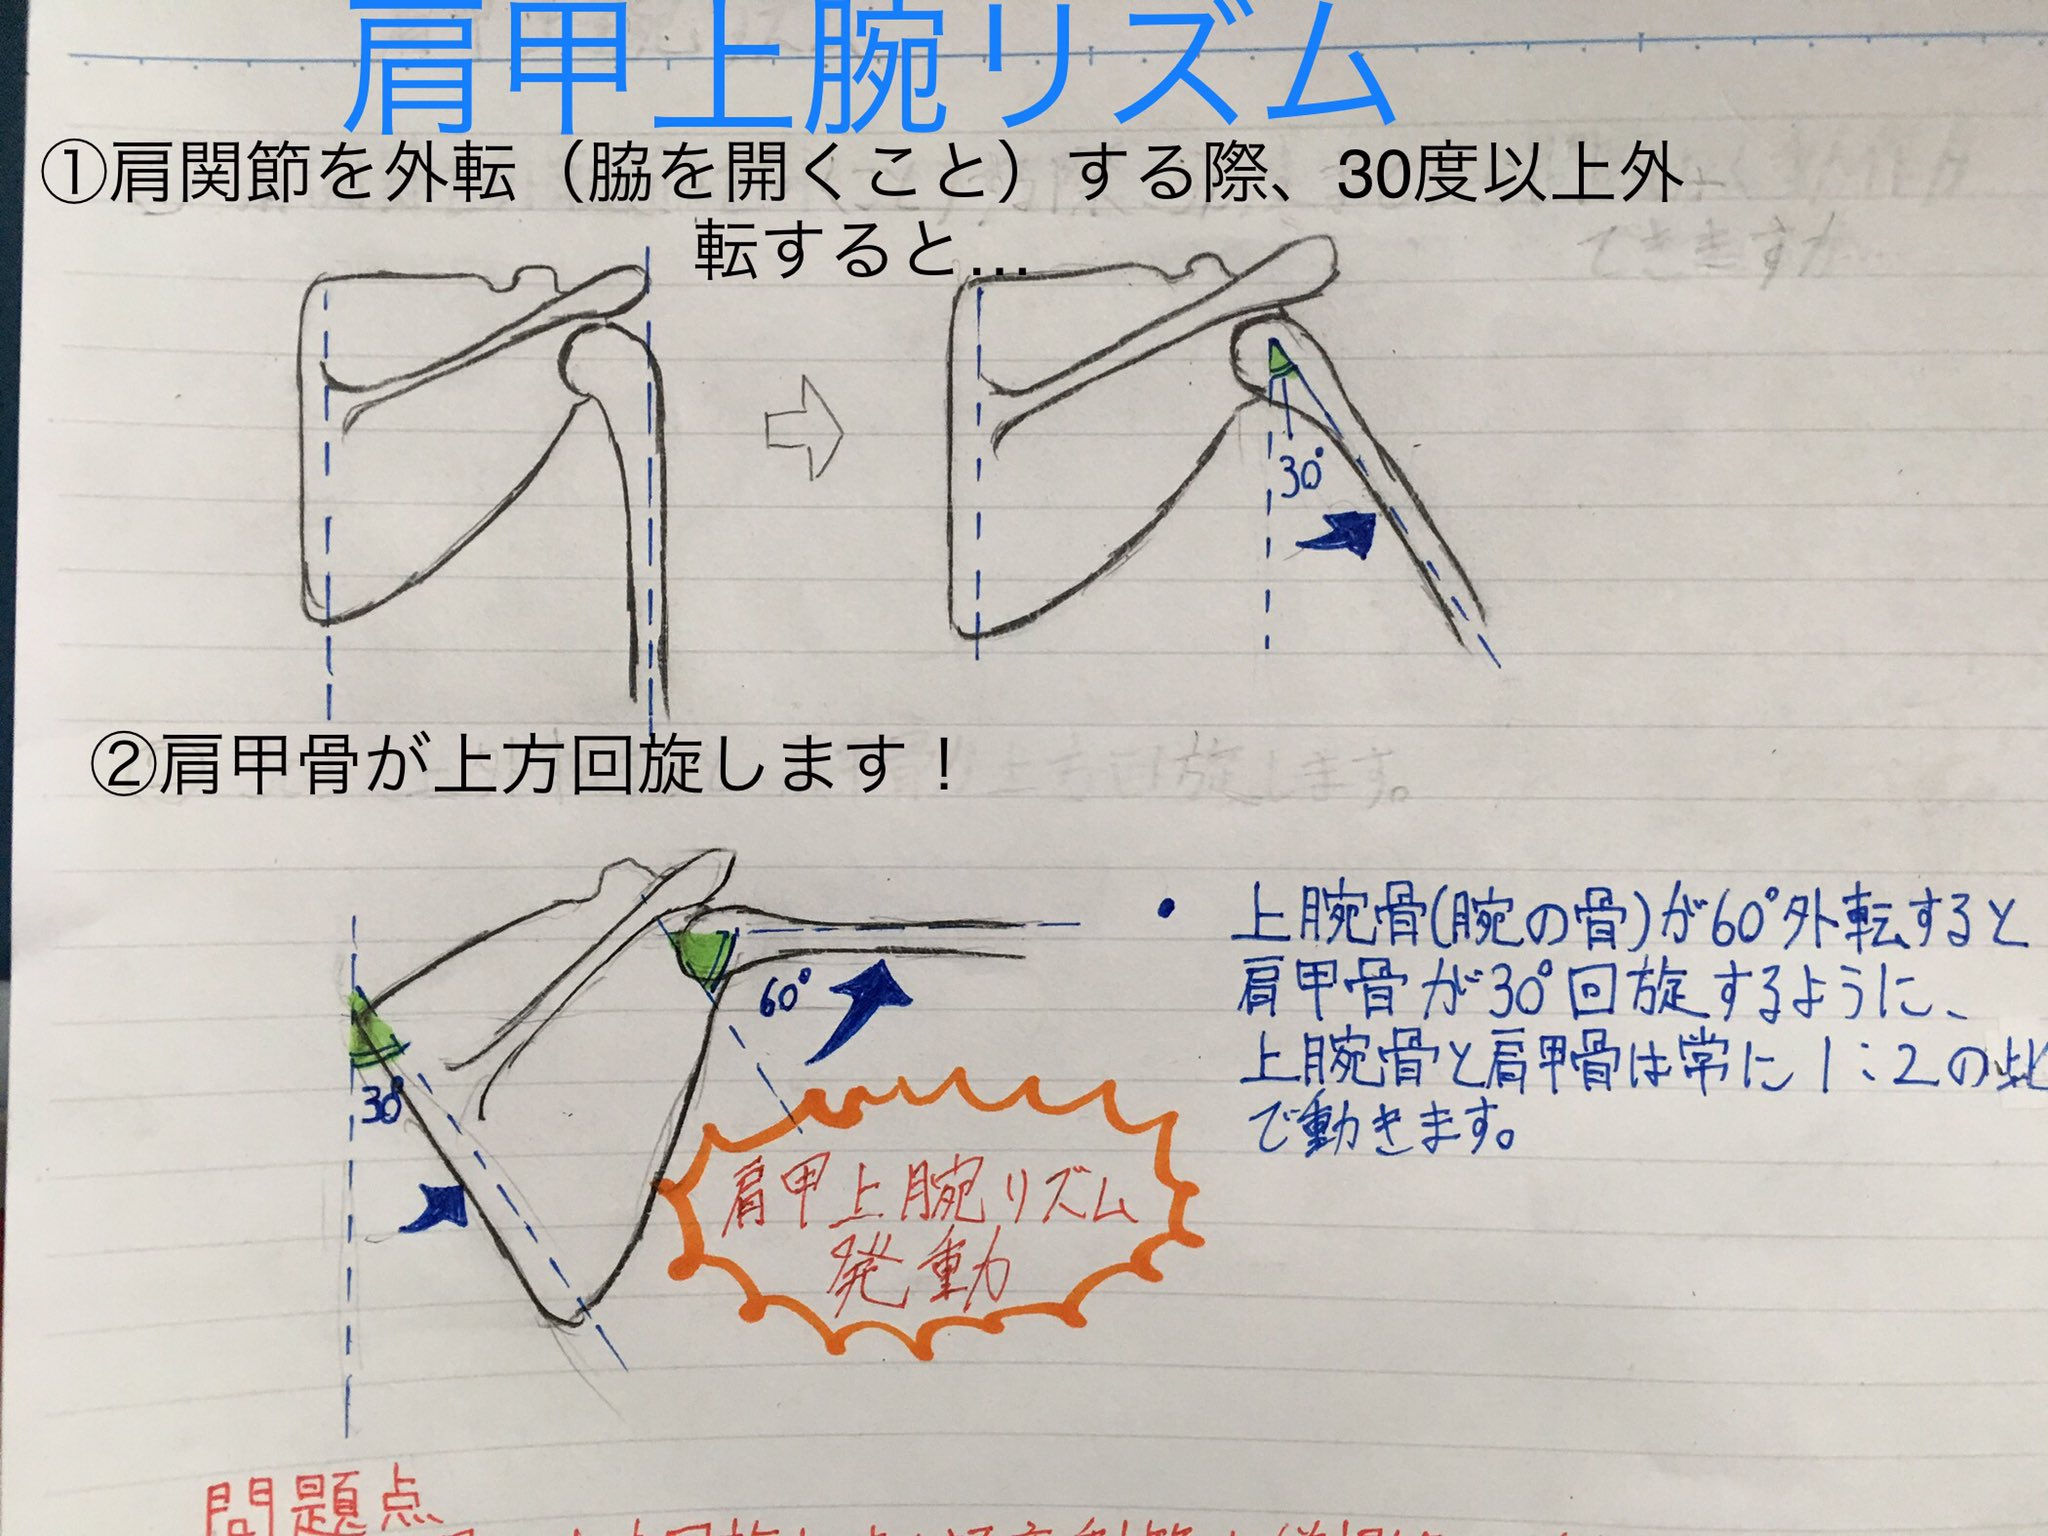 肩甲上腕リズム
①肩関節を外転（脇を開くこと）する際、30度以上外
転すると…
30°
②肩甲骨が上方回旋します！
60°
30°
・ 上腕骨(腕の骨)が60°外転すると
肩甲骨が30°回旋するように、
上腕骨と肩甲骨は常に1:2の比
で動きます。
肩甲上腕リズム
発動
問題点